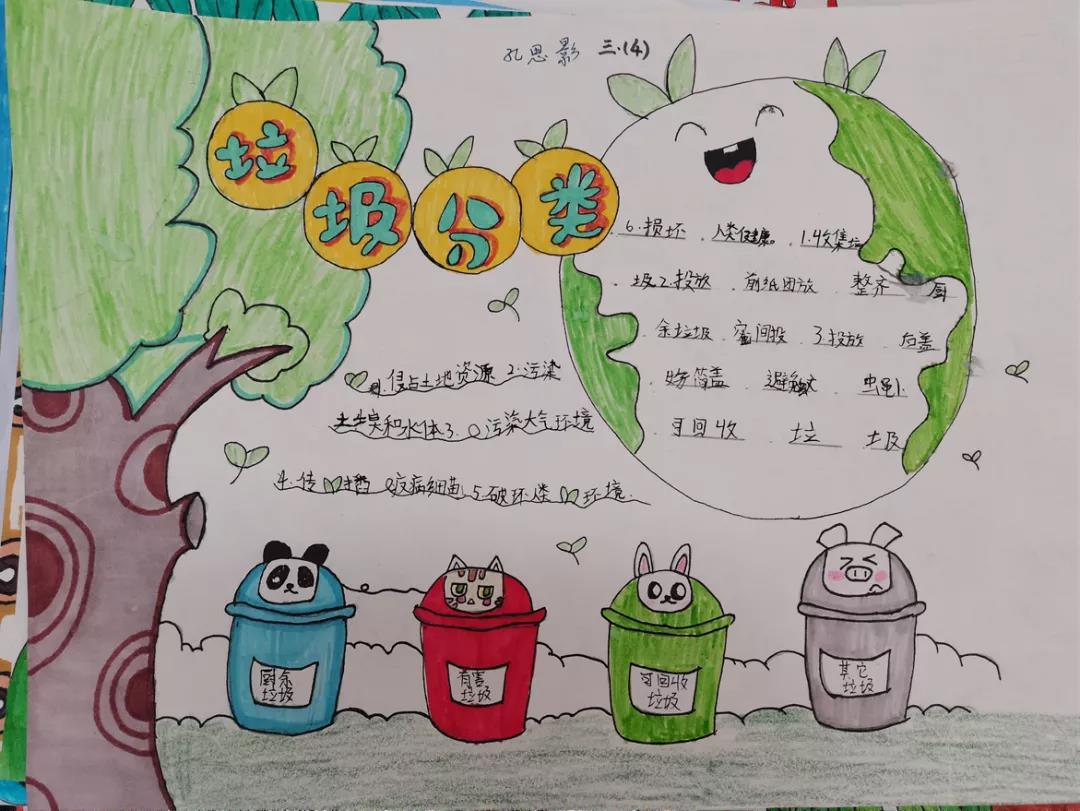 孔思影 三.(4)
垃圾分类
6.损坏.人类健康。1.收集垃
圾2.投放.前纸团放 整齐.厨
余垃圾.密间投.3.投放.后盖
筒盖.避 虫
可回收 垃 圾
1.侵占土地资源 2.污染
土 和水体3.污染大气环境
4.传播 疫病细菌 5.破坏 类 环境.
厨余
垃圾
有害
垃圾
可回收
垃圾
其它
垃圾